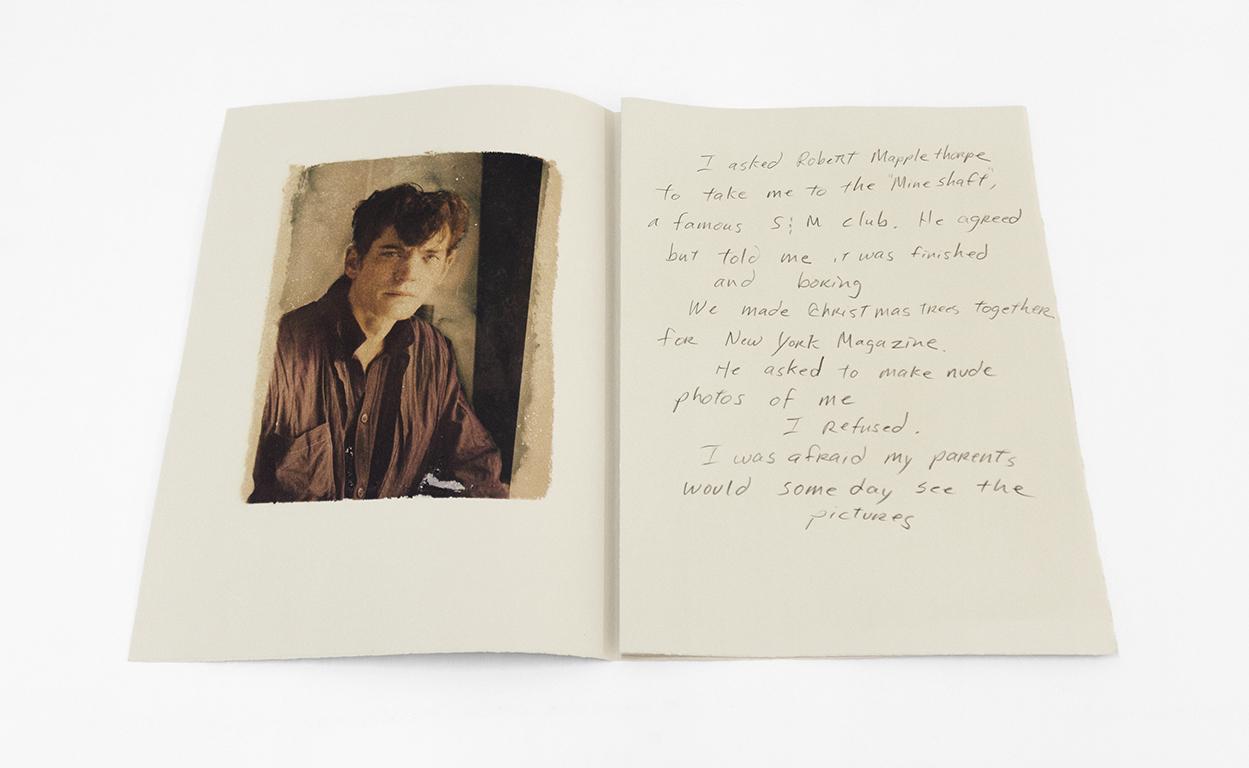 I asked Robert Mapplethorpe
to take me to the "Mineshaft",
a famous S & M club. He agreed
but told me it was finished
and boring
We made Christmas trees together
for New York Magazine.
He asked to make nude
photos of me
I refused.
I was afraid my parents
would some day see the
pictures